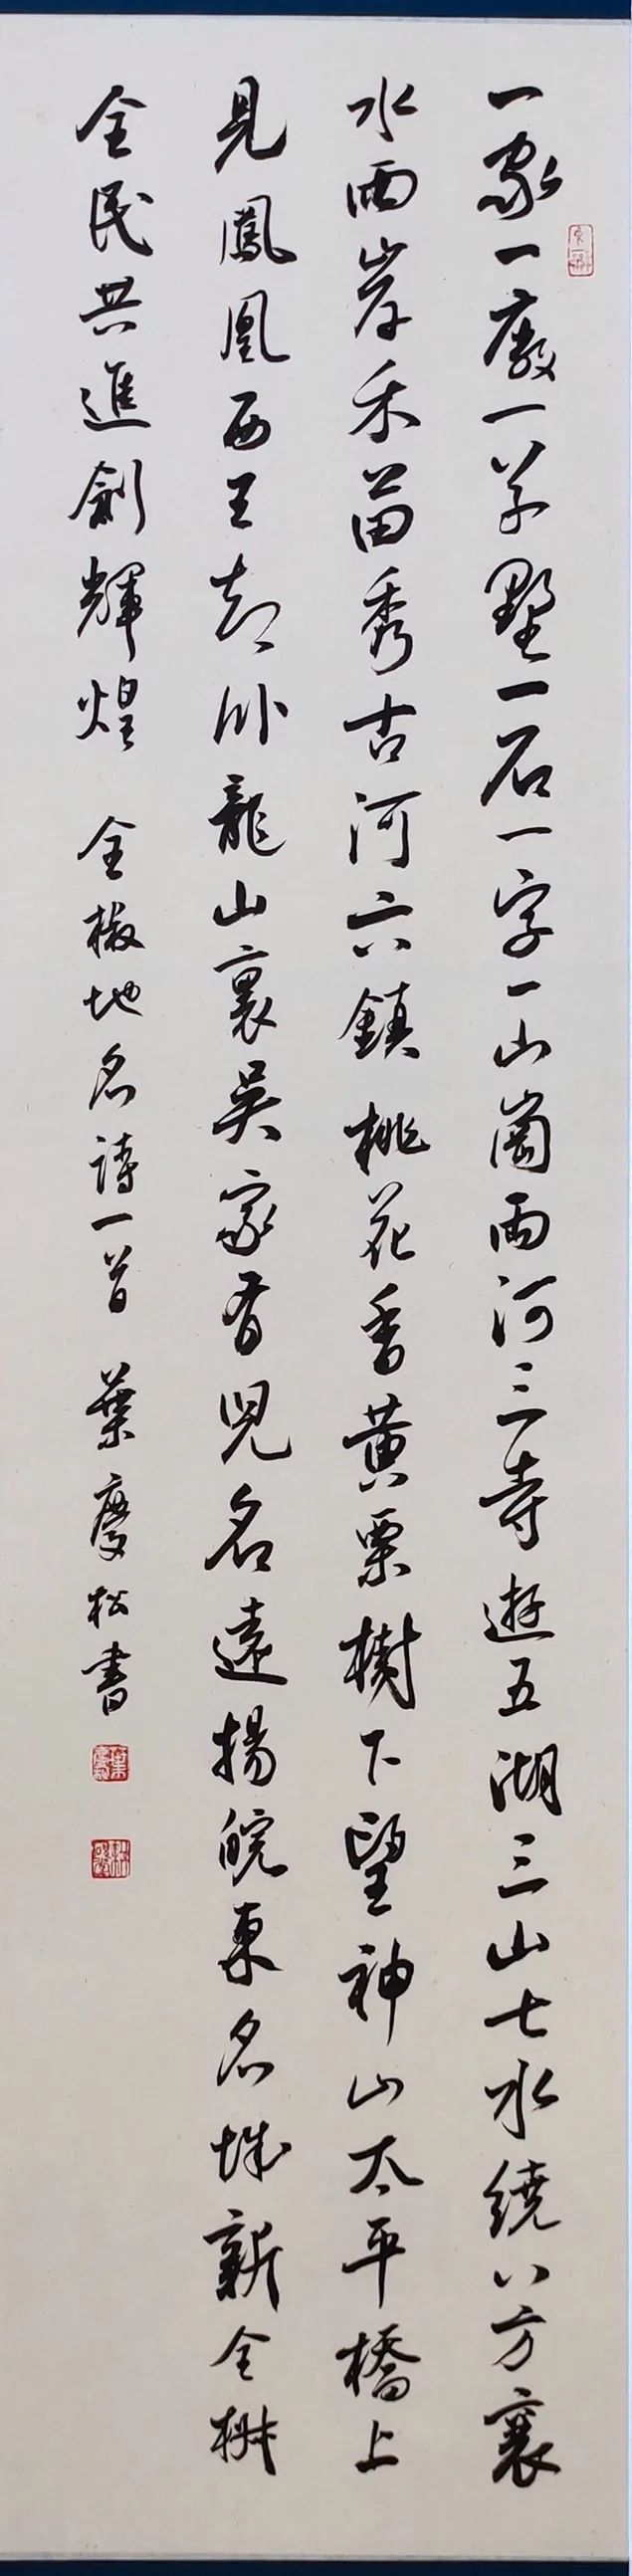 一家一廠一草墅一石一字一山崗兩河三寺遊五湖三山七水繞八方襄
水兩岸禾苗秀古河六鎮桃花香黄栗樹下望神山太平橋上
見鳳凰西王却卧龍山裏吳家有兒名遠揚皖東名城新全椒
全民共進創輝煌 全椒地名詩一首 葉慶松書